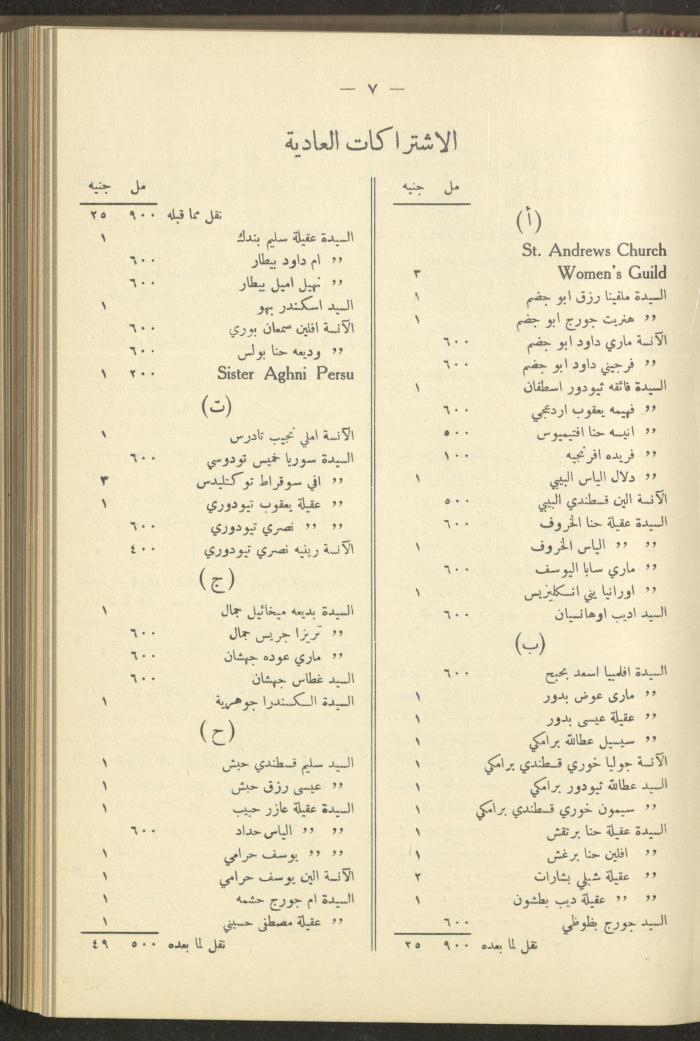 — ٧ —
الاشتراكات العادية
مل جنيه
(أ)
St. Andrews Church
Women's Guild ٣
السيدة ملفينا رزق ابو جضم ١
,, هنريت جورج ابو جضم ١
الآنسة ماري داود ابو جضم ٦٠٠
,, فرجيني داود ابو جضم ٦٠٠
السيدة فائقه ثيودور اسطفان ١
,, فهيمه يعقوب اردغجي ٦٠٠
,, انيسه حنا افتيميوس ٥٠٠
,, فريده افرنجيه ١٠٠
,, دلال الياس البيبي ١
الآنسة الين قسطندي البيبي ٥٠٠
السيدة عقيلة حنا الخروف ٦٠٠
,, ,, الياس الخروف ١
,, ماري سابا اليوسف ٦٠٠
,, اورانيا يني انكليزيس ١
السيد اديب اوهانسيان ٦٠٠
(ب)
السيدة افلمبيا اسعد بحبح ٦٠٠
,, مارى عوض بدور ١
,, عقيلة عيسى بدور ١
,, سيسيل عطالله برامكي ١
الآنسة جوليا خوري قسطندي برامكي ١
السيد عطالله ثيودور برامكي ١
,, سيمون خوري قسطندي برامكي ١
السيدة عقيلة حنا برتقش ١
,, افلين حنا برغش ١
,, عقيلة شبلي بشارات ٢
,, ,, عقيلة ديب بطشون ١
السيد جورج بظوظي ٦٠٠
نقل لما بعده ٩٠٠ ٢٥
مل جنيه
نقل مما قبله ٩٠٠ ٢٥
السيدة عقيلة سليم بندك ١
,, ام داود بيطار ٦٠٠
,, نهيل اميل بيطار ٦٠٠
السيد اسكندر بهو ١
الآنسة افلين سمعان بوري ٦٠٠
,, وديعه حنا بولس ٦٠٠
Sister Aghni Persu ٢٠٠ ١
(ت)
الآنسة املي نجيب تادرس ١
السيدة سوريا خميس تودوسي ٦٠٠
,, افي سوقراط توكتليدس ٣
,, عقيلة يعقوب تيودوري ١
,, ,, نصري تيودوري ٦٠٠
الآنسة رينيه نصري تيودوري ٤٠٠
(ج)
السيدة بديعه ميخائيل جمال ١
,, تريزا جريس جمال ٦٠٠
,, ماري عوده جهشان ٦٠٠
السيد غطاس جهشان ٦٠٠
السيدة الكسندرا جوهرية ١
(ح)
السيد سليم قسطندي حبش ١
,, عيسى رزق حبش ١
السيدة عقيلة عازر حبيب ١
,, ,, الياس حداد ٦٠٠
,, ,, يوسف حرامي ١
الآنسة الين يوسف حرامي ١
السيدة ام جورج حشمه ١
,, عقيلة مصطفى حسيني ١
نقل لما بعده ٥٠٠ ٤٩